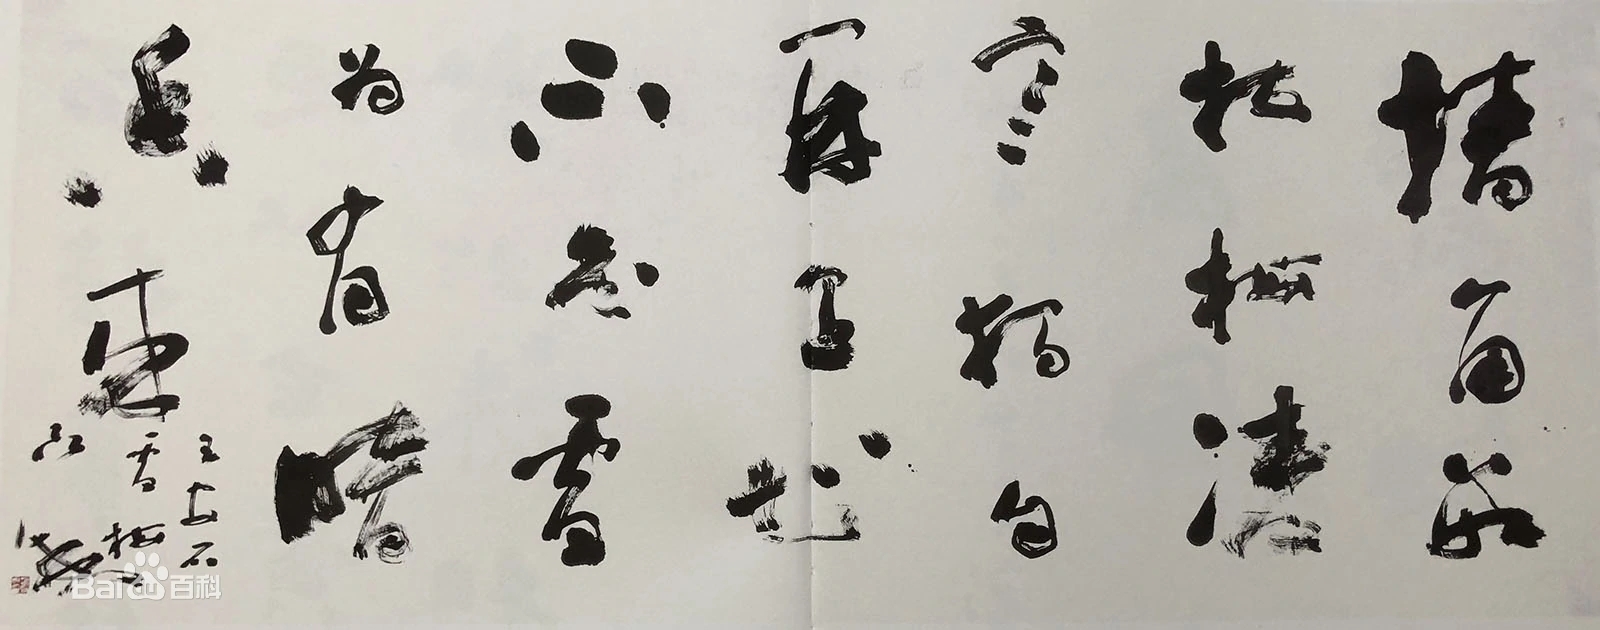 墙角数
枝梅凌
寒独自
开遥知
不是雪
为有暗
香来
王安石
雪梅
Baidu百科